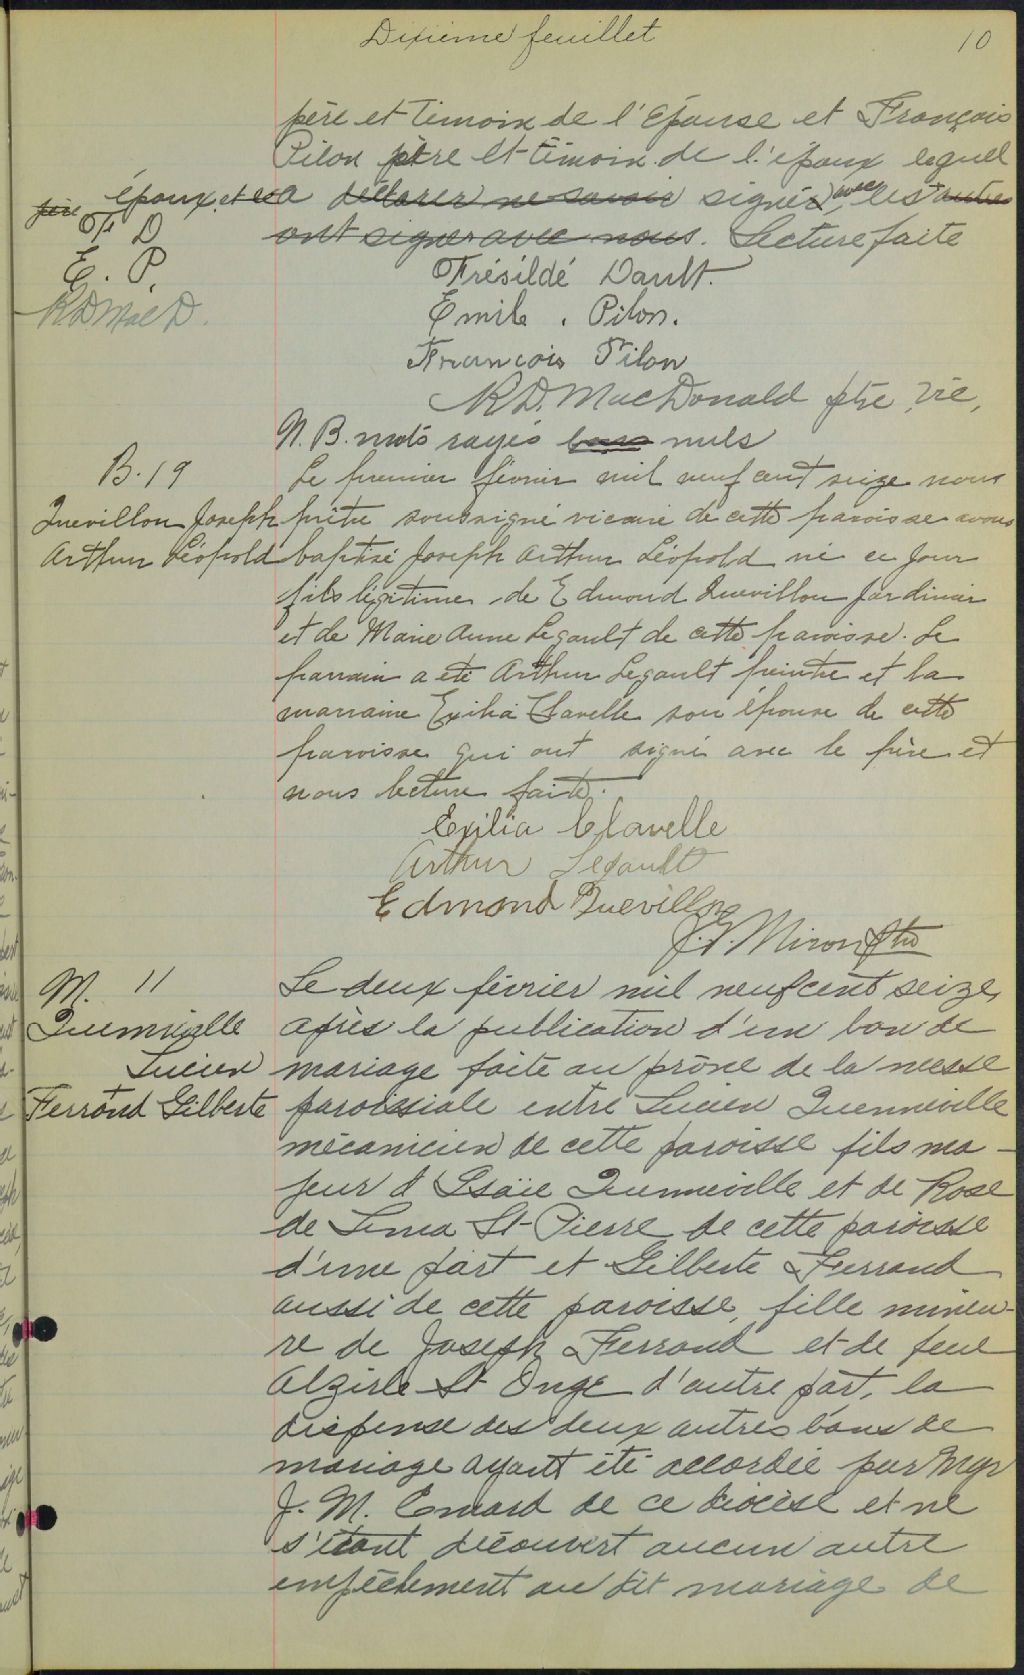 Dixième feuillet
10
père et témoin de l'épouse et François
Pilon père et témoin de l'époux lequel
a déclarer ne savoir signer, avec les autres
père époux et
ont signer avec nous. Lecture faite
F D
E. P.
R.D. MacD.
Frésildé Dault.
Emile . Pilon.
Francois Pilon
R.D. MacDonald ptre, vic,
N.B. mots rayés nuls
B. 19
Quevillon Joseph
Arthur Léopold
Le premier février mil neuf cent seize nous
prêtre soussigné vicaire de cette paroisse avons
baptisé Joseph Arthur Léopold né ce jour
fils légitime de Edmond Quevillon jardinier
et de Marie Anne Legault de cette paroisse. Le
parrain a été Arthur Legault peintre et la
marraine Exilia Clavelle son épouse de cette
paroisse qui ont signé avec le père et
nous lecture faite.
Exilia Clavelle
Arthur Legault
Edmond Quevillon
Miron Ptre
M. 11
Quenneville
Lucien
Ferrand Gilberte
Le deux février mil neuf cent seize,
après la publication d'un ban de
mariage faite au prône de la messe
paroissiale entre Lucien Quenneville
mécanicien de cette paroisse fils ma-
jeur d'Isaïe Quenneville et de Rose
de Lima St-Pierre de cette paroisse
d'une part et Gilberte Ferrand
aussi de cette paroisse, fille mineu-
re de Joseph Ferrand et de feue
Alzire St Onge d'autre part, la
dispense des deux autres bans de
mariage ayant été accordée par Mgr
J. M. Emard de ce diocèse et ne
s'étant découvert aucun autre
empêchement au dit mariage de